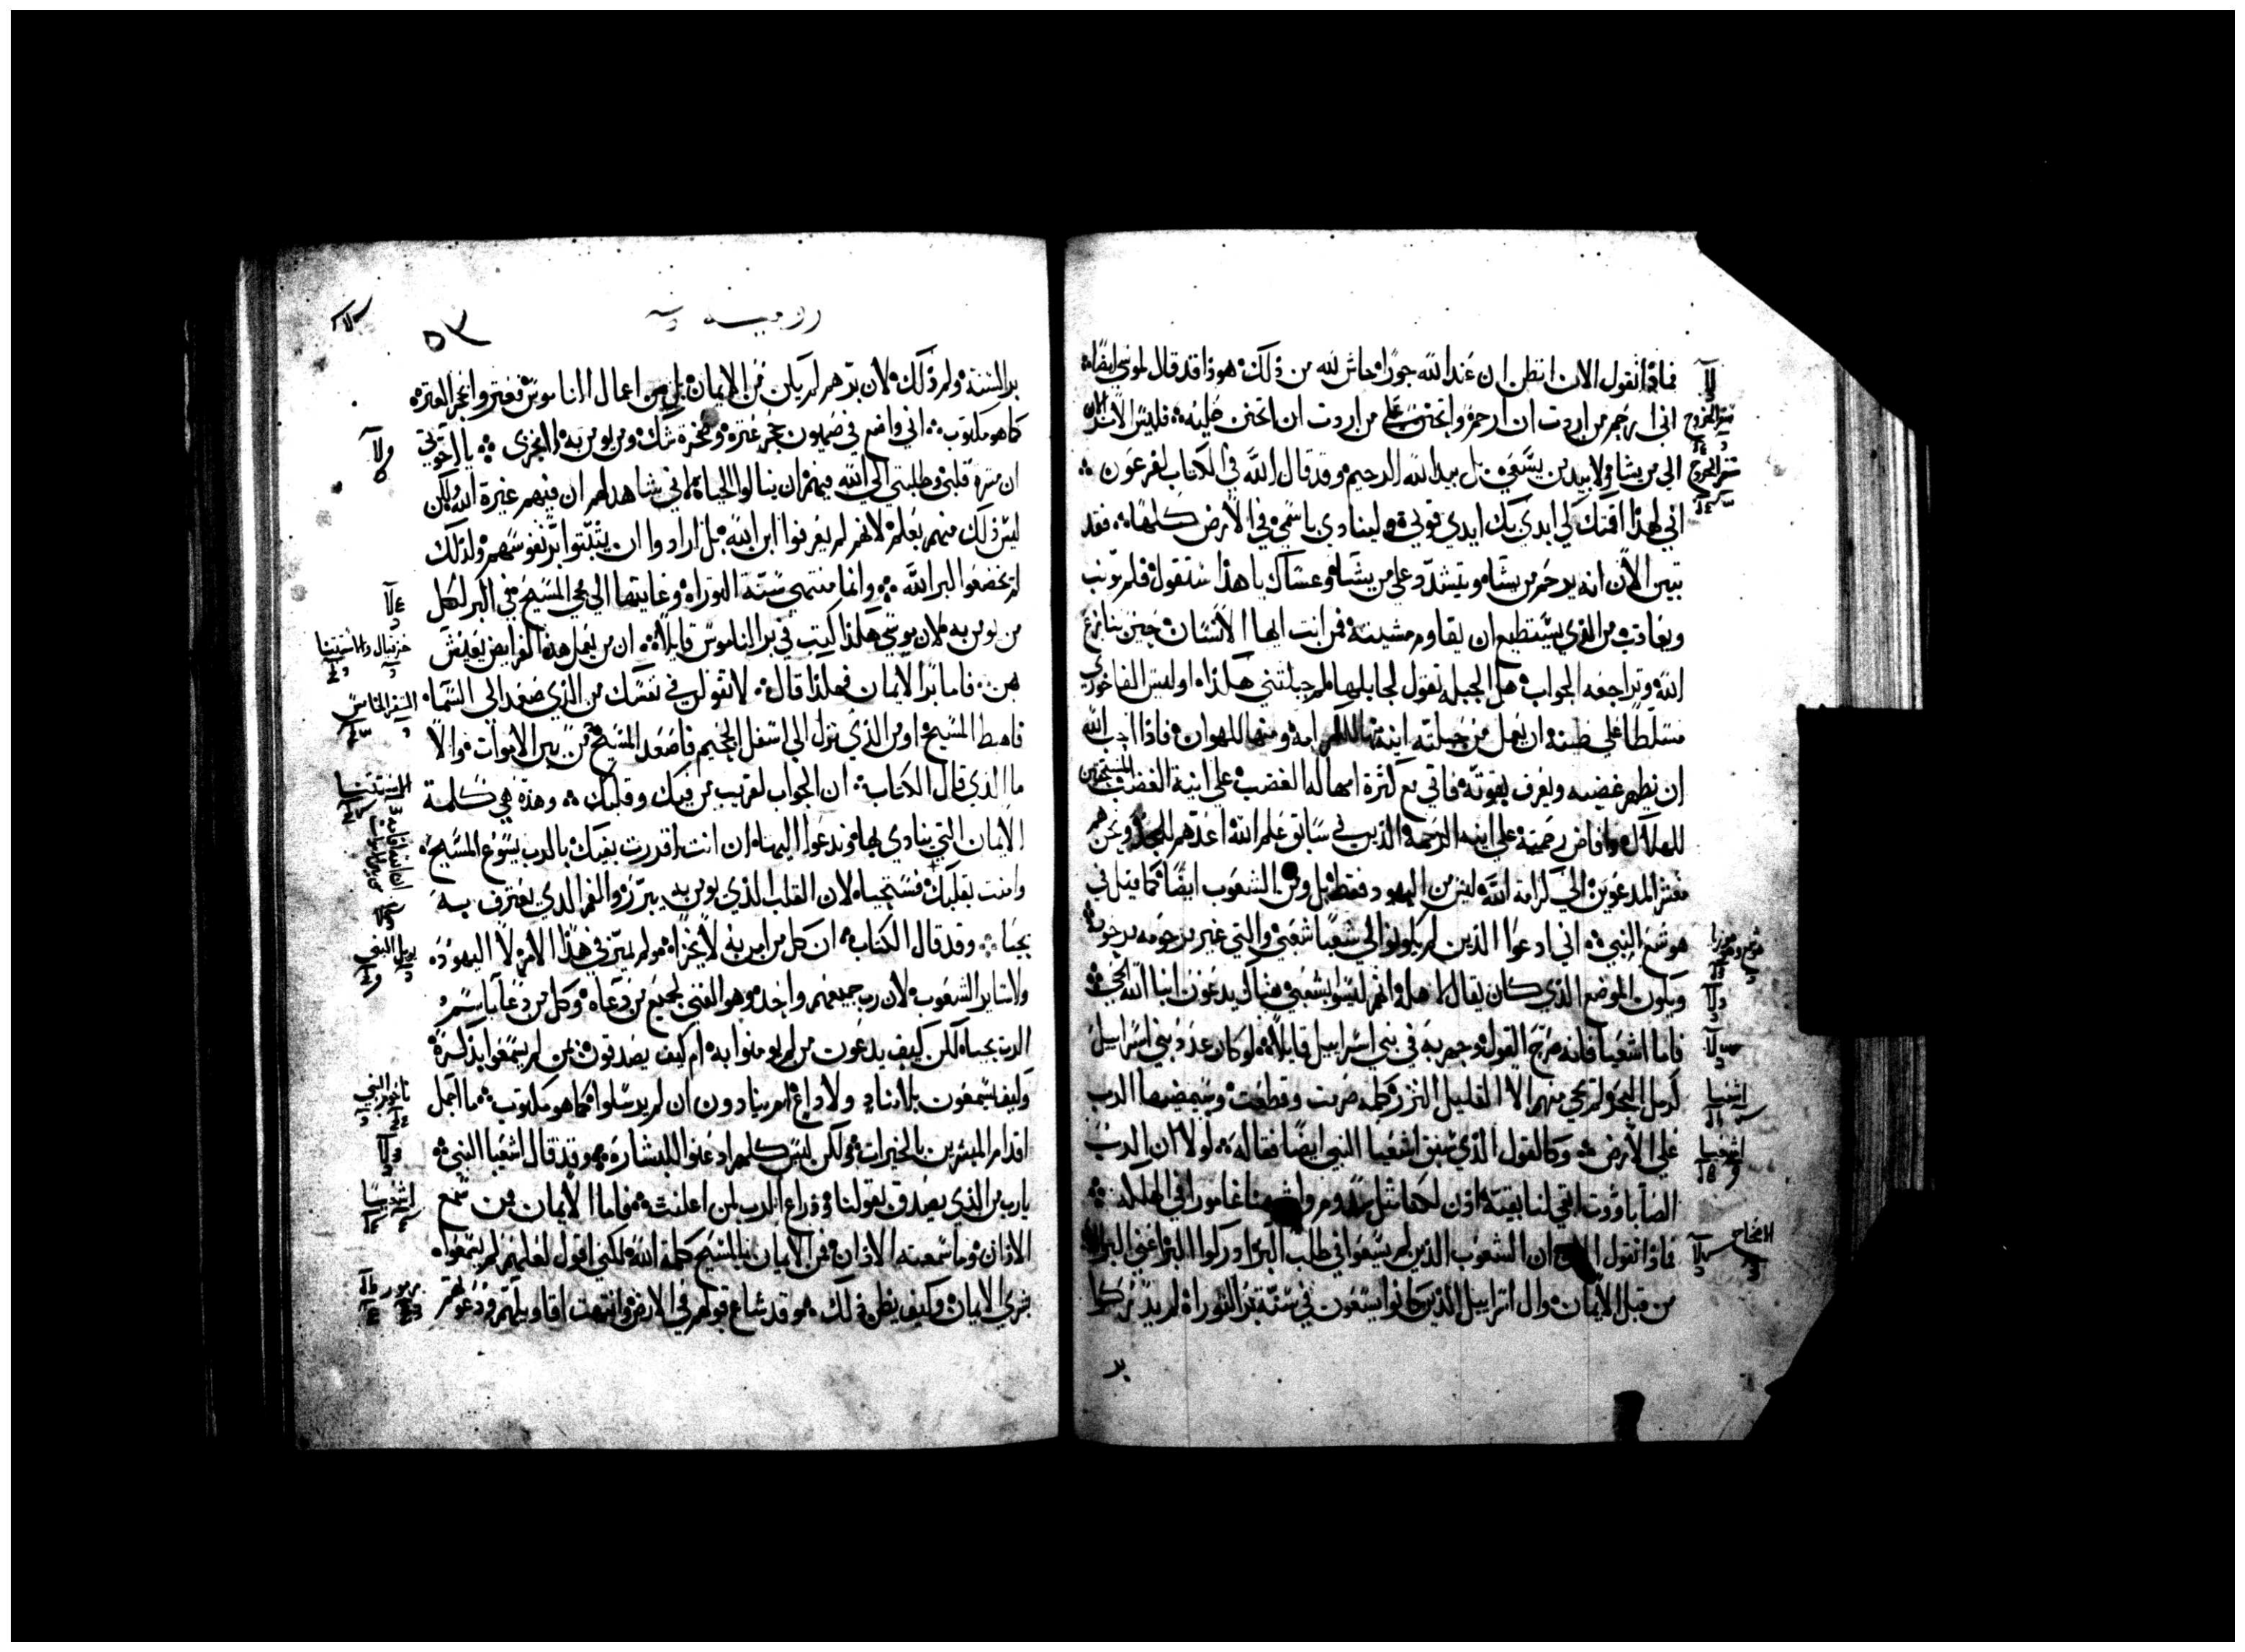 فماذا نقول الان انظن ان عند الله جورًا حاش لله من ذلك هوذا قد قال لموسى ايضًا
اني ارحم من اردت ان ارحمه واتحنن علي من اردت ان اتحنن عليه فليس الامر الان
الي من يشا ولا بيد من يسعي بل بيد الله الرحيم وقد قال الله في الكتاب لفرعون
اني لهذا اقمتك لي ابدي بك ايدي قوتي ولينادي باسمي في الارض كلها فقد
تبين الان انه يرحم من يشا ويتشدد علي من يشا وعساك يا هذا ستقول فلم يونب
ويعاتب من الذي يستطيع ان يقاوم مشيته فمن انت ايها الانسان حين تنازع
الله وتراجعه الجواب هل الجبله تقول لجابلها لم جبلتني هكذا اوليس الفاخوري
مسلطًا علي طينه ان يعمل من جبلته انية منها للكرامه ومنها للهوان فاذا احب الله
ان يظهر غضبه ويعرف بقوته فاتي مع كثرة امهاله الغضب علي انية الغضب المستحقين
للهلاك وافاض رحمته علي انيه الرحمه الذين في سابق علم الله اعدهم للمجد ونحن هم
معشر المدعوين الي كرامة الله ليس من اليهود فقط بل ومن الشعوب ايضًا كما قيل في
هوشع النبي اني ادعوا الذين لم يكونوا لي شعبًا شعبي والتي غير مرحومه مرحومة
ويكون الموضع الذي كان يقال لاهله انهم ليسوا بشعبي هناك يدعون ابنا الله الحي
فاما اشعيا فانه صرح القول وجهر به في بني اسراييل قايلاً لو كان عدد بني اسراييل
كرمل البحر لم ينجي منهم الا القليل النزر كلمه صرمت وقطعت وسيمضيها الرب
علي الارض وكالقول الذي سبق اشعيا النبي ايضًا فقاله لولا ان الرب
الصاباووت ابقي لنا بقية اذن لكنا مثل سدوم واشبهنا غامورا في الهلكه
فماذا نقول ان الشعوب الذين لم يسعوا في طلب البر ادركوا البر اعني البر
من قبل الايمان وال اسراييل الذين كانوا يسعون في سنة بر التوراه لم يدركوا
بر
روميه
٥٣
بر السنة ولم ذلك لان برهم لم يكن من الايمان بل من اعمال الناموس فعثروا بحجر العثره
كما هو مكتوب اني واضع في صهيون حجر عثرة وصخرة شك ومن يومن به لا يخزى يا اخوتي
ان مسرة قلبي وطلبتي الي الله فيهم ان ينالوا الحياة لاني شاهد لهم ان فيهم غيرة الله ولكن
ليس ذلك منهم بعلم لانهم لم يعرفوا بر الله بل ارادوا ان يثبتوا بر نفوسهم ولذلك
لم يخضعوا لبر الله وانما منتهي سنة التوراه وغايتها الي مجي المسيح في البر لكل
من يومن به لان موسي هكذا كتب في بر الناموس قايلاً ان من يعمل هذه الفرايض يعيش
بهن فاما بر الايمان فهكذا قال لا تقولن في نفسك من الذي صعد الي السما
فاهبط المسيح او من الذي نزل الي اسفل الجحيم فاصعد المسيح من بين الاموات والا
ما الذي قال الكتاب ان الجواب لقريب من فيك وقلبك وهذه هي كلمة
الايمان التي ينادي بها وندعوا اليها ان انت اقررت بفيك بالرب يسوع المسيح
وامنت بقلبك فستحيا لان القلب الذي يومن به يبرر والفم الذي يعترف به
يحيا وقد قال الكتاب ان كل من امن به لا يخزا ولم يميز في هذا الامر لا اليهود
ولا ساير الشعوب لان رب جميعهم واحد وهو الغني لجميع من دعاه وكل من دعا باسم
الرب يحيا لكن كيف يدعون من لم يومنوا به ام كيف يصدقون بمن لم يسمعوا بذكره
وكيف يسمعون بلا مناد ولا داع ام ينادون ان لم يرسلوا كما هو مكتوب ما اجمل
اقدام المبشرين بالخيرات ولكن ليس كلهم اذعنوا للبشاره وقد قال اشعيا النبي
يا رب من الذي يصدق بقولنا وذراع الرب لمن اعلنت فاما الايمان فمن سمع
الاذان وما سمعته الاذان فمن الايمان بالمسيح كلمة الله لكني اقول لعلهم لم يسمعوا
بشري الايمان وكيف يظن ذلك وقد شاع قولهم في الارض وانتهت اقاويلهم ودعوتهم
سفر الخروج
سفر الخروج
اشعيا
اشعيا
حزقيال والاستثنا
السفر الخامس
الاستثنا
يويل النبي
ناحوم النبي
اشعيا
مزمور